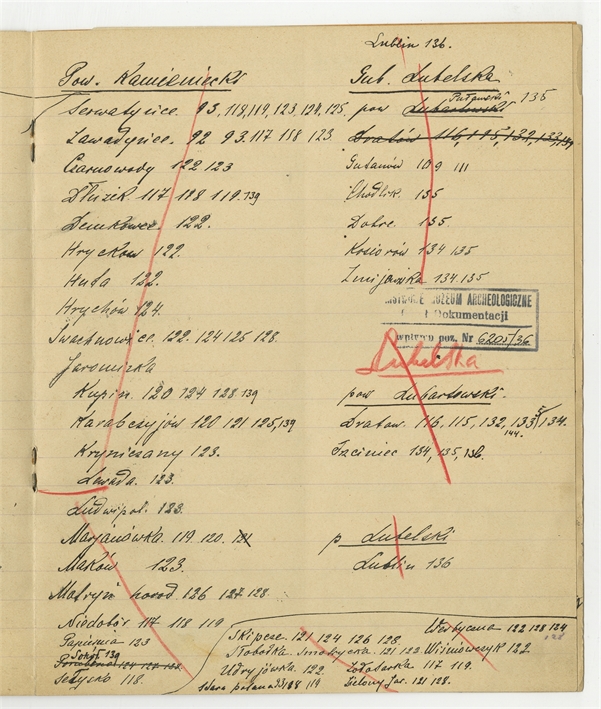 Pow. Kamieniecki
Serwatyńce. 93, 118, 119, 123, 124, 125.
Zawadyńce. 92 93. 117 118 123.
Czarnowody 122 123
Dłużek. 117 118 119. 139
Demkowce. 122.
Hryckow 122.
Huta 122.
Hrychów 124.
Iwachnowce. 122. 124 125 128.
Jaromirka
Kupin. 120 124 128 139
Karabczyjów 120 121 125, 139
Kryniczany 123.
Lewada. 123.
Ludwipol. 123.
Marjanówka. 119 120. 121
Maków 123.
Matryn horod. 136 127 128.
Niedobór 117 118 119
Papiernia 123
Sokół 139
124 127 132
Sełyско 118.
Skipcze. 121 124 126 128.
Słobodka Smotrycka. 121 123
Udryjówka. 122.
Stara 118 119
Werbyczna 122 128 124
128
Wiśniowczyk 122.
Żołotarka 117 119.
Zielony Jar. 121 128.
Lublin 136.
Gub. Lubelska
pow Lubartowski Puławski 135
Dratów 116, 115, 132, 133, 134
Gutanów 109 111
Chodlik. 135
Dobre. 135.
Kosiorów 134 135
Żmijowska 134. 135
MUZEUM ARCHEOLOGICZNE
Dokumentacji
wpływu poz. Nr 6205/36
Lubelska
pow Lubartowski.
Dratow. 116, 115, 132, 133, 134.
144.
Łęciniec 134, 135, 136.
p Lubelski
Lublin 136